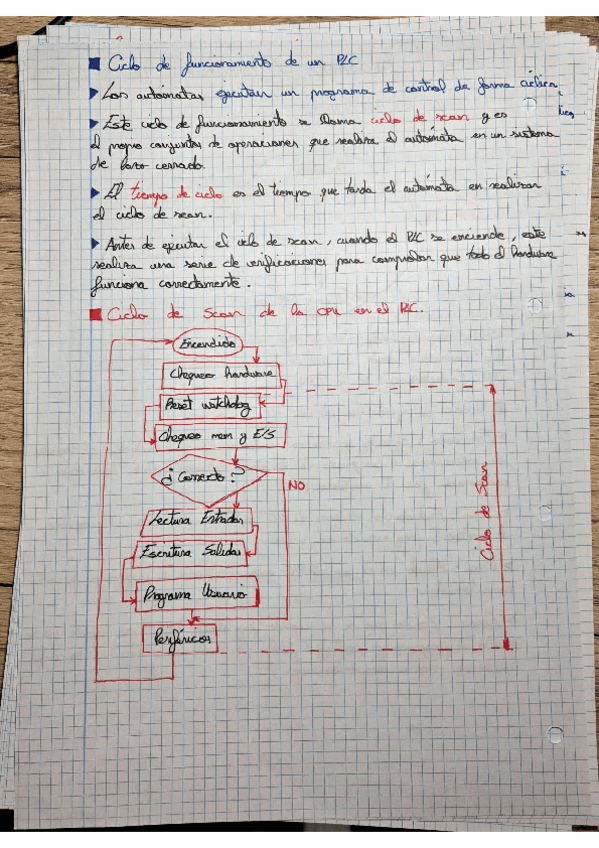 Ciclo de funcionamiento de un PLC
Los autómatas ejecutan un programa de control de forma cíclica.
Este ciclo de funcionamiento se llama ciclo de scan y es
el propio conjunto de operaciones que realiza el autómata en un sistema
de lazo cerrado.
El tiempo de ciclo es el tiempo que tarda el autómata en realizar
el ciclo de scan.
Antes de ejecutar el ciclo de scan, cuando el PLC se enciende, este
realiza una serie de verificaciones para comprobar que todo el hardware
funciona correctamente.
Ciclo de Scan de la CPU en el PLC.
Encendido
Chequeo hardware
Reset watchdog
Chequeo mem y E/S
¿Correcto?
NO
Lectura Entradas
Escritura Salidas
Programa Usuario
Periféricos
Ciclo de Scan